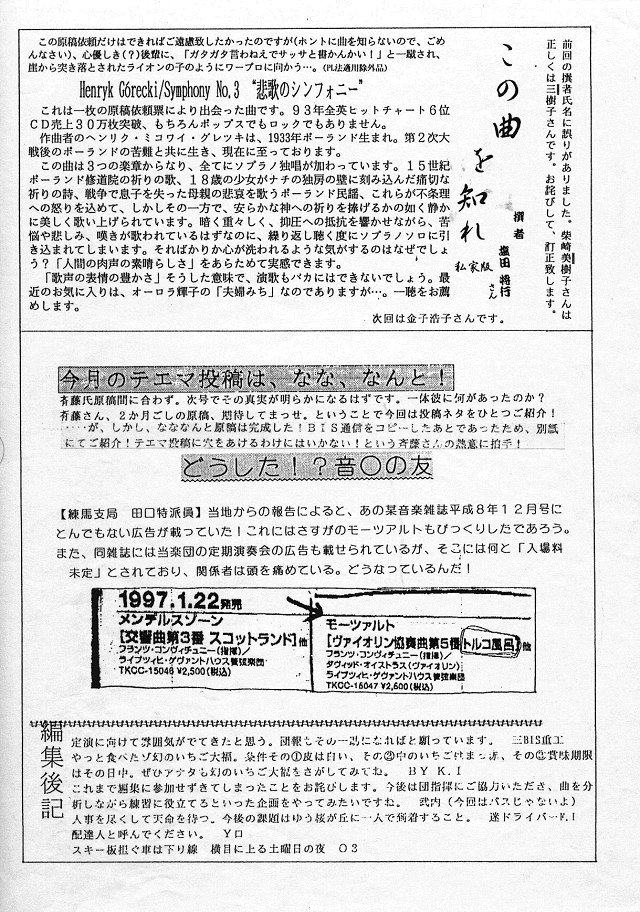 前回の撰者氏名に誤りがありました。柴崎美樹子さんは
正しくは三樹子さんです。お詫びして、訂正致します。
この曲を知れ
私家版
撰者 塩田 将行さん
この原稿依頼だけはできればご遠慮致したかったのですが(ホントに曲を知らないので、ごめ
んなさい)、心優しき(?)後輩に、「ガタガタ言わねえでサッサと書かんかい!」と一蹴され、
崖から突き落とされたライオンの子のようにワープロに向かう…。(PL法適用除外品)
Henryk Górecki/Symphony No.3 “悲歌のシンフォニー”
これは一枚の原稿依頼票により出会った曲です。93年全英ヒットチャート6位
CD売上30万枚突破、もちろんポップスでもロックでもありません。
作曲者のヘンリク・ミコワイ・グレツキは、1933年ポーランド生まれ。第2次大
戦後のポーランドの苦難と共に生き、現在に至っております。
この曲は3つの楽章からなり、全てにソプラノ独唱が加わっています。15世紀
ポーランド修道院の祈りの歌、18歳の少女がナチの独房の壁に刻み込んだ痛切な
祈りの詩、戦争で息子を失った母親の悲哀を歌うポーランド民謡、これらが不条理
への怒りを込めて、しかしその一方で、安らかな神への祈りを捧げるかの如く静か
に美しく歌い上げられています。暗く重々しく、抑圧への抵抗を響かせながら、苦
悩や悲しみ、嘆きが歌われているはずなのに、繰り返し聴く度にソプラノソロに引
き込まれてしまいます。そればかりか心が洗われるような気がするのはなぜでしょ
う?「人間の肉声の素晴らしさ」をあらためて実感できます。
「歌声の表情の豊かさ」そうした意味で、演歌もバカにはできないでしょう。最
近のお気に入りは、オーロラ輝子の「夫婦みち」なのでありますが…。一聴をお薦
めします。
次回は金子浩子さんです。
今月のテエマ投稿は、なな、なんと!
斉藤氏原稿間に合わず。次号でその真実が明らかになるはずです。一体彼に何があったのか?
斉藤さん、2か月ごしの原稿、期待してまっせ。ということで今回は投稿ネタをひとつご紹介!
……が、しかし、なななんと原稿は完成した!BIS通信をコピーしたあとであったため、別紙
にてご紹介!テエマ投稿に穴をあけるわけにはいかない!という斉藤さんの熱意に拍手!
どうした!?音〇の友
【練馬支局 田口特派員】当地からの報告によると、あの某音楽雑誌平成8年12月号に
とんでもない広告が載っていた!これにはさすがのモーツアルトもびっくりしたであろう。
また、同雑誌には当楽団の定期演奏会の広告も載せられているが、そこには何と「入場料
未定」とされており、関係者は頭を痛めている。どうなっているんだ!
1997.1.22発売
メンデルスゾーン
[交響曲第3番 スコットランド]他
フランツ・コンヴィチュニー(指揮)/
ライプツィヒ・ゲヴァントハウス管弦楽団
TKCC-15046 ¥2,500(税込)
モーツァルト
[ヴァイオリン協奏曲第5番 トルコ風呂]他
フランツ・コンヴィチュニー(指揮)/
ダヴィッド・オイストラフ(ヴァイオリン)
ライプツィヒ・ゲヴァントハウス管弦楽団
TKCC-15047 ¥2,500(税込)
編集後記
定演に向けて雰囲気がでてきたと思う。団報もその一助になればと願っています。 三BIS重工
やっと食べたゾ幻のいちご大福。条件その①皮は白い、その②中のいちごはまっ赤、その③賞味期限
はその日中。ぜひアナタも幻のいちご大福をさがしてみてね。 BY K.I
これまで編集に参加せずきてしまったことをお詫びします。今後は団指揮にご協力いただき、曲を分
析しながら練習に役立てるといった企画をやってみたいですね。 武内(今回はパスじゃないよ)
人事を尽くして天命を待つ。今後の課題はゆう桜が丘に一人で到着すること。 迷ドライバーF.I
配達人と呼んでください。 Yロ
スキー板担ぐ車は下り線 横目に上る土曜日の夜 O3